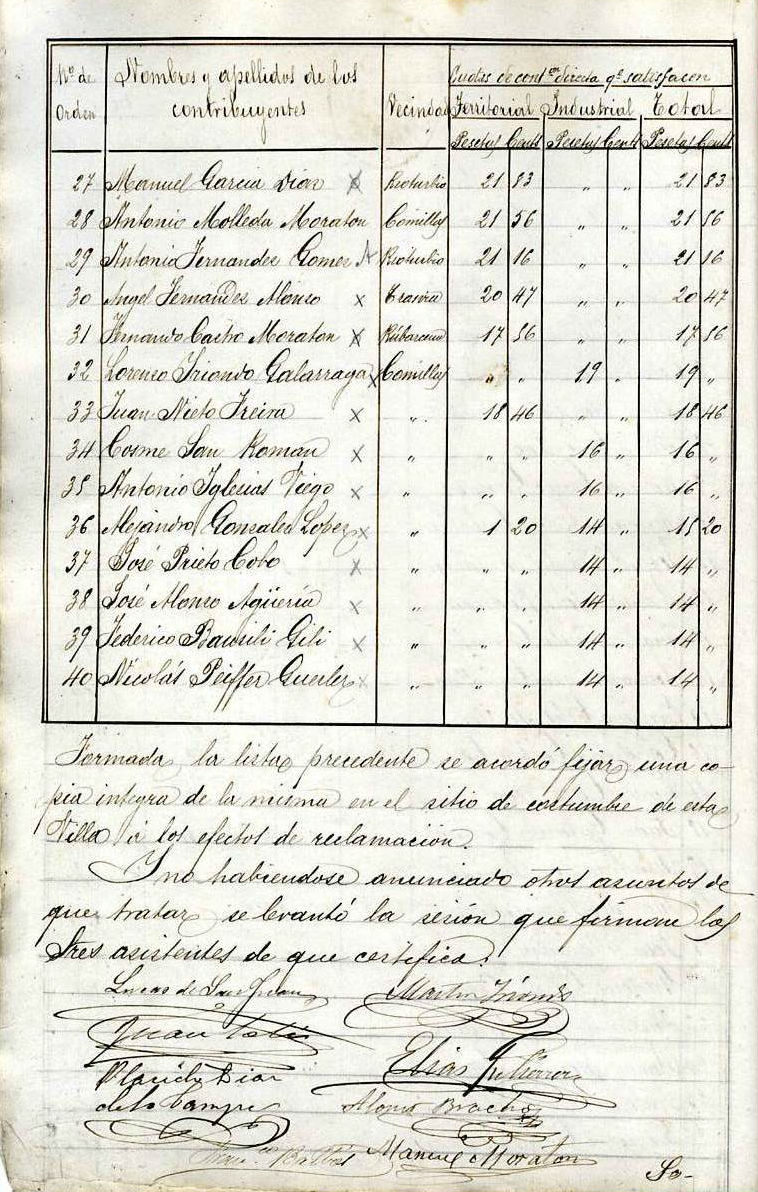 Nº de Nombres y apellidos de los Cuotas de contón directa qe satisfacen
Orden contribuyentes Vecindad Territorial Industrial Total
Pesetas Cents Pesetas Cents Pesetas Cents
27 Manuel Garcia Diaz x Rioturbio 21 83 " " 21 83
28 Antonio Molleda Moraton Comillas 21 56 " " 21 56
29 Antonio Fernandez Gomez Rioturbio 21 16 " " 21 16
30 Angel Fernandez Alonso x Trasvia 20 47 " " 20 47
31 Fernando Cacho Moraton x 17 56 " " 17 56
32 Lorenzo Iriondo Galarraga x Comillas " " 19 " 19 "
33 Juan Nieto Freira x " 18 46 18 46
34 Cosme San Roman x " " " 16 " 16 "
35 Antonio Iglesias Viego x " " " 16 " 16 "
36 Alejandro Gonzalez Lopez x " 1 20 14 " 15 20
37 José Prieto Cobo x " " " 14 " 14 "
38 José Alonso Agüeria x " " " 14 " 14 "
39 Federico Bausili Gili x " " " 14 " 14 "
40 Nicolás Peiffer x " " " 14 " 14 "
Formada la lista precedente se acordó fijar una co-
pia integra de la misma en el sitio de costumbre de esta
Villa á los efectos de reclamación.
Y no habiendose anunciado otros asuntos de
que tratar se levantó la sesión que firman los
Sres asistentes de que certifica.
Lucas de San Juan Martin
Juan
Elias Gutierrez
Placido Diaz
de la Campa Alonso
Manuel Moraton
So-